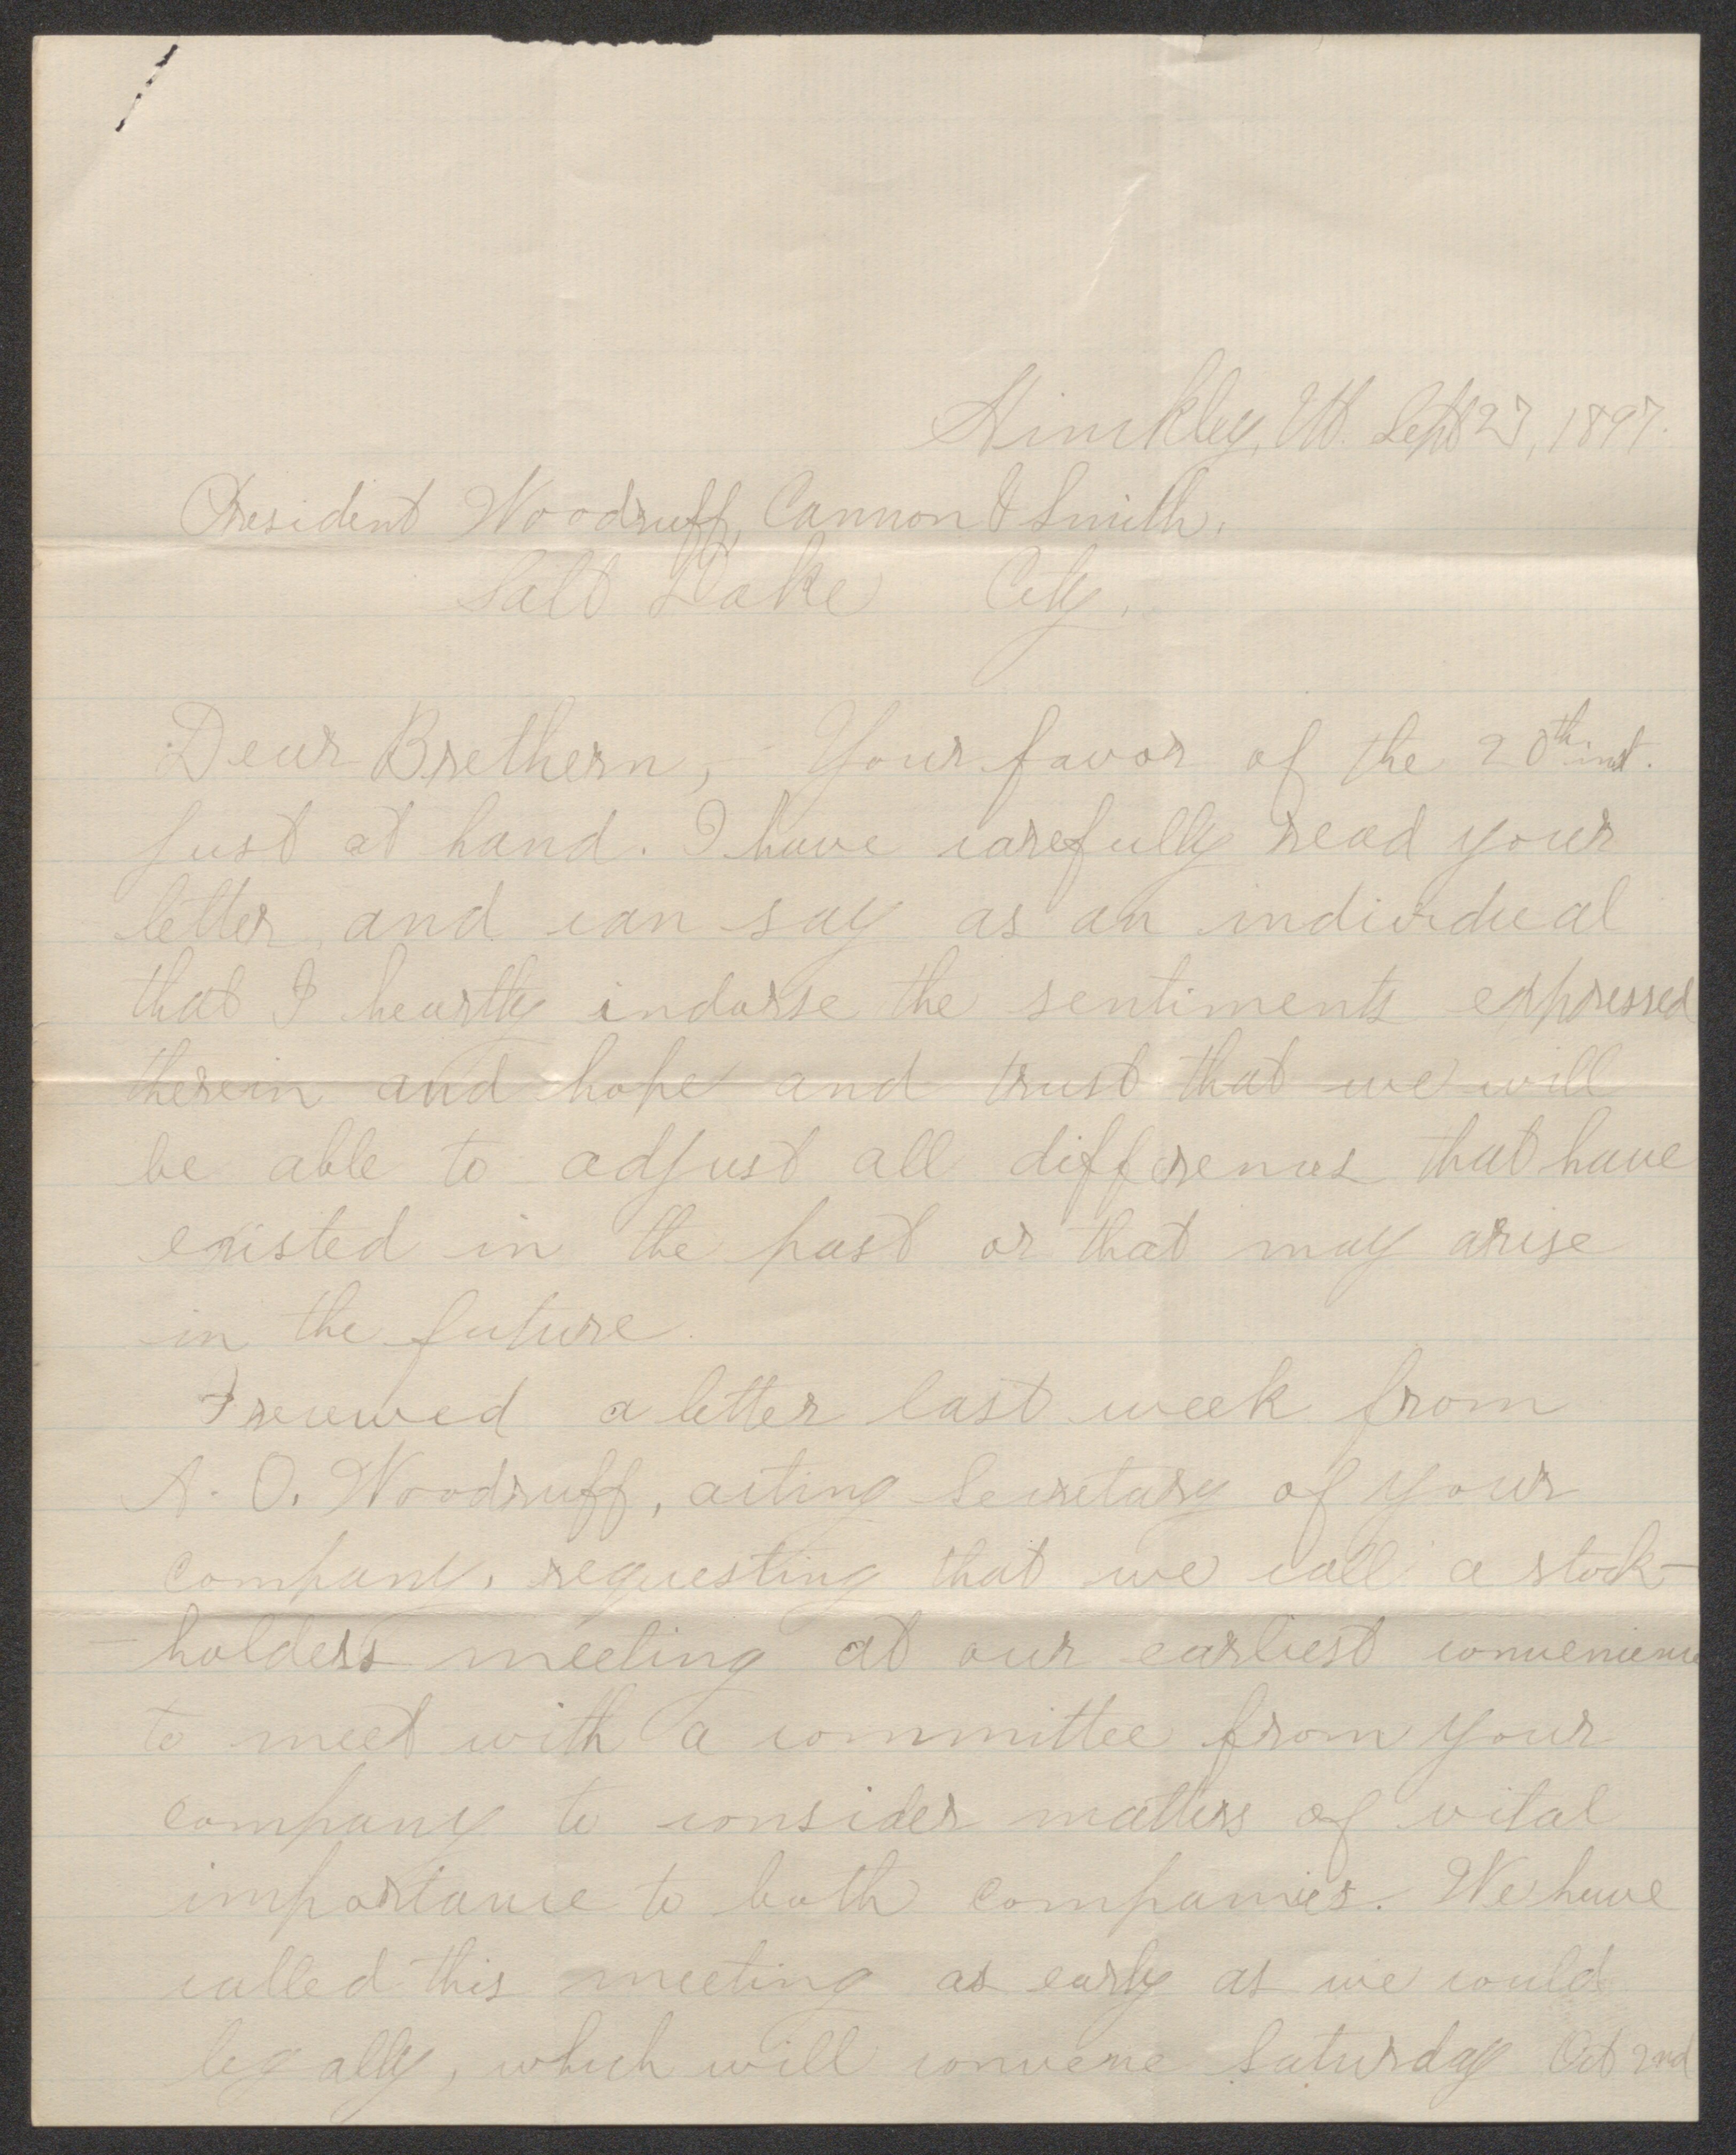 Hinckley, Ut. Sept 27, 1897.
President Woodruff, Cannon & Smith.
Salt Lake City.
Dear Brethern, - Your favor of the 20th inst.
just at hand. I have carefully read your
letter, and can say as an individual
that I heartly indorse the sentiments expressed
therein and hope and trust that we will
be able to adjust all differences that have
existed in the past or that may arise
in the future.
I received a letter last week from
A. O. Woodruff, acting Secretary of your
company, requesting that we call a stock-
-holders meeting at our earliest convenience
to meet with a committee from your
company to consider matters of vital
importance to both companies. We have
called this meeting as early as we could
legally, which will convene Saturday Oct 2nd